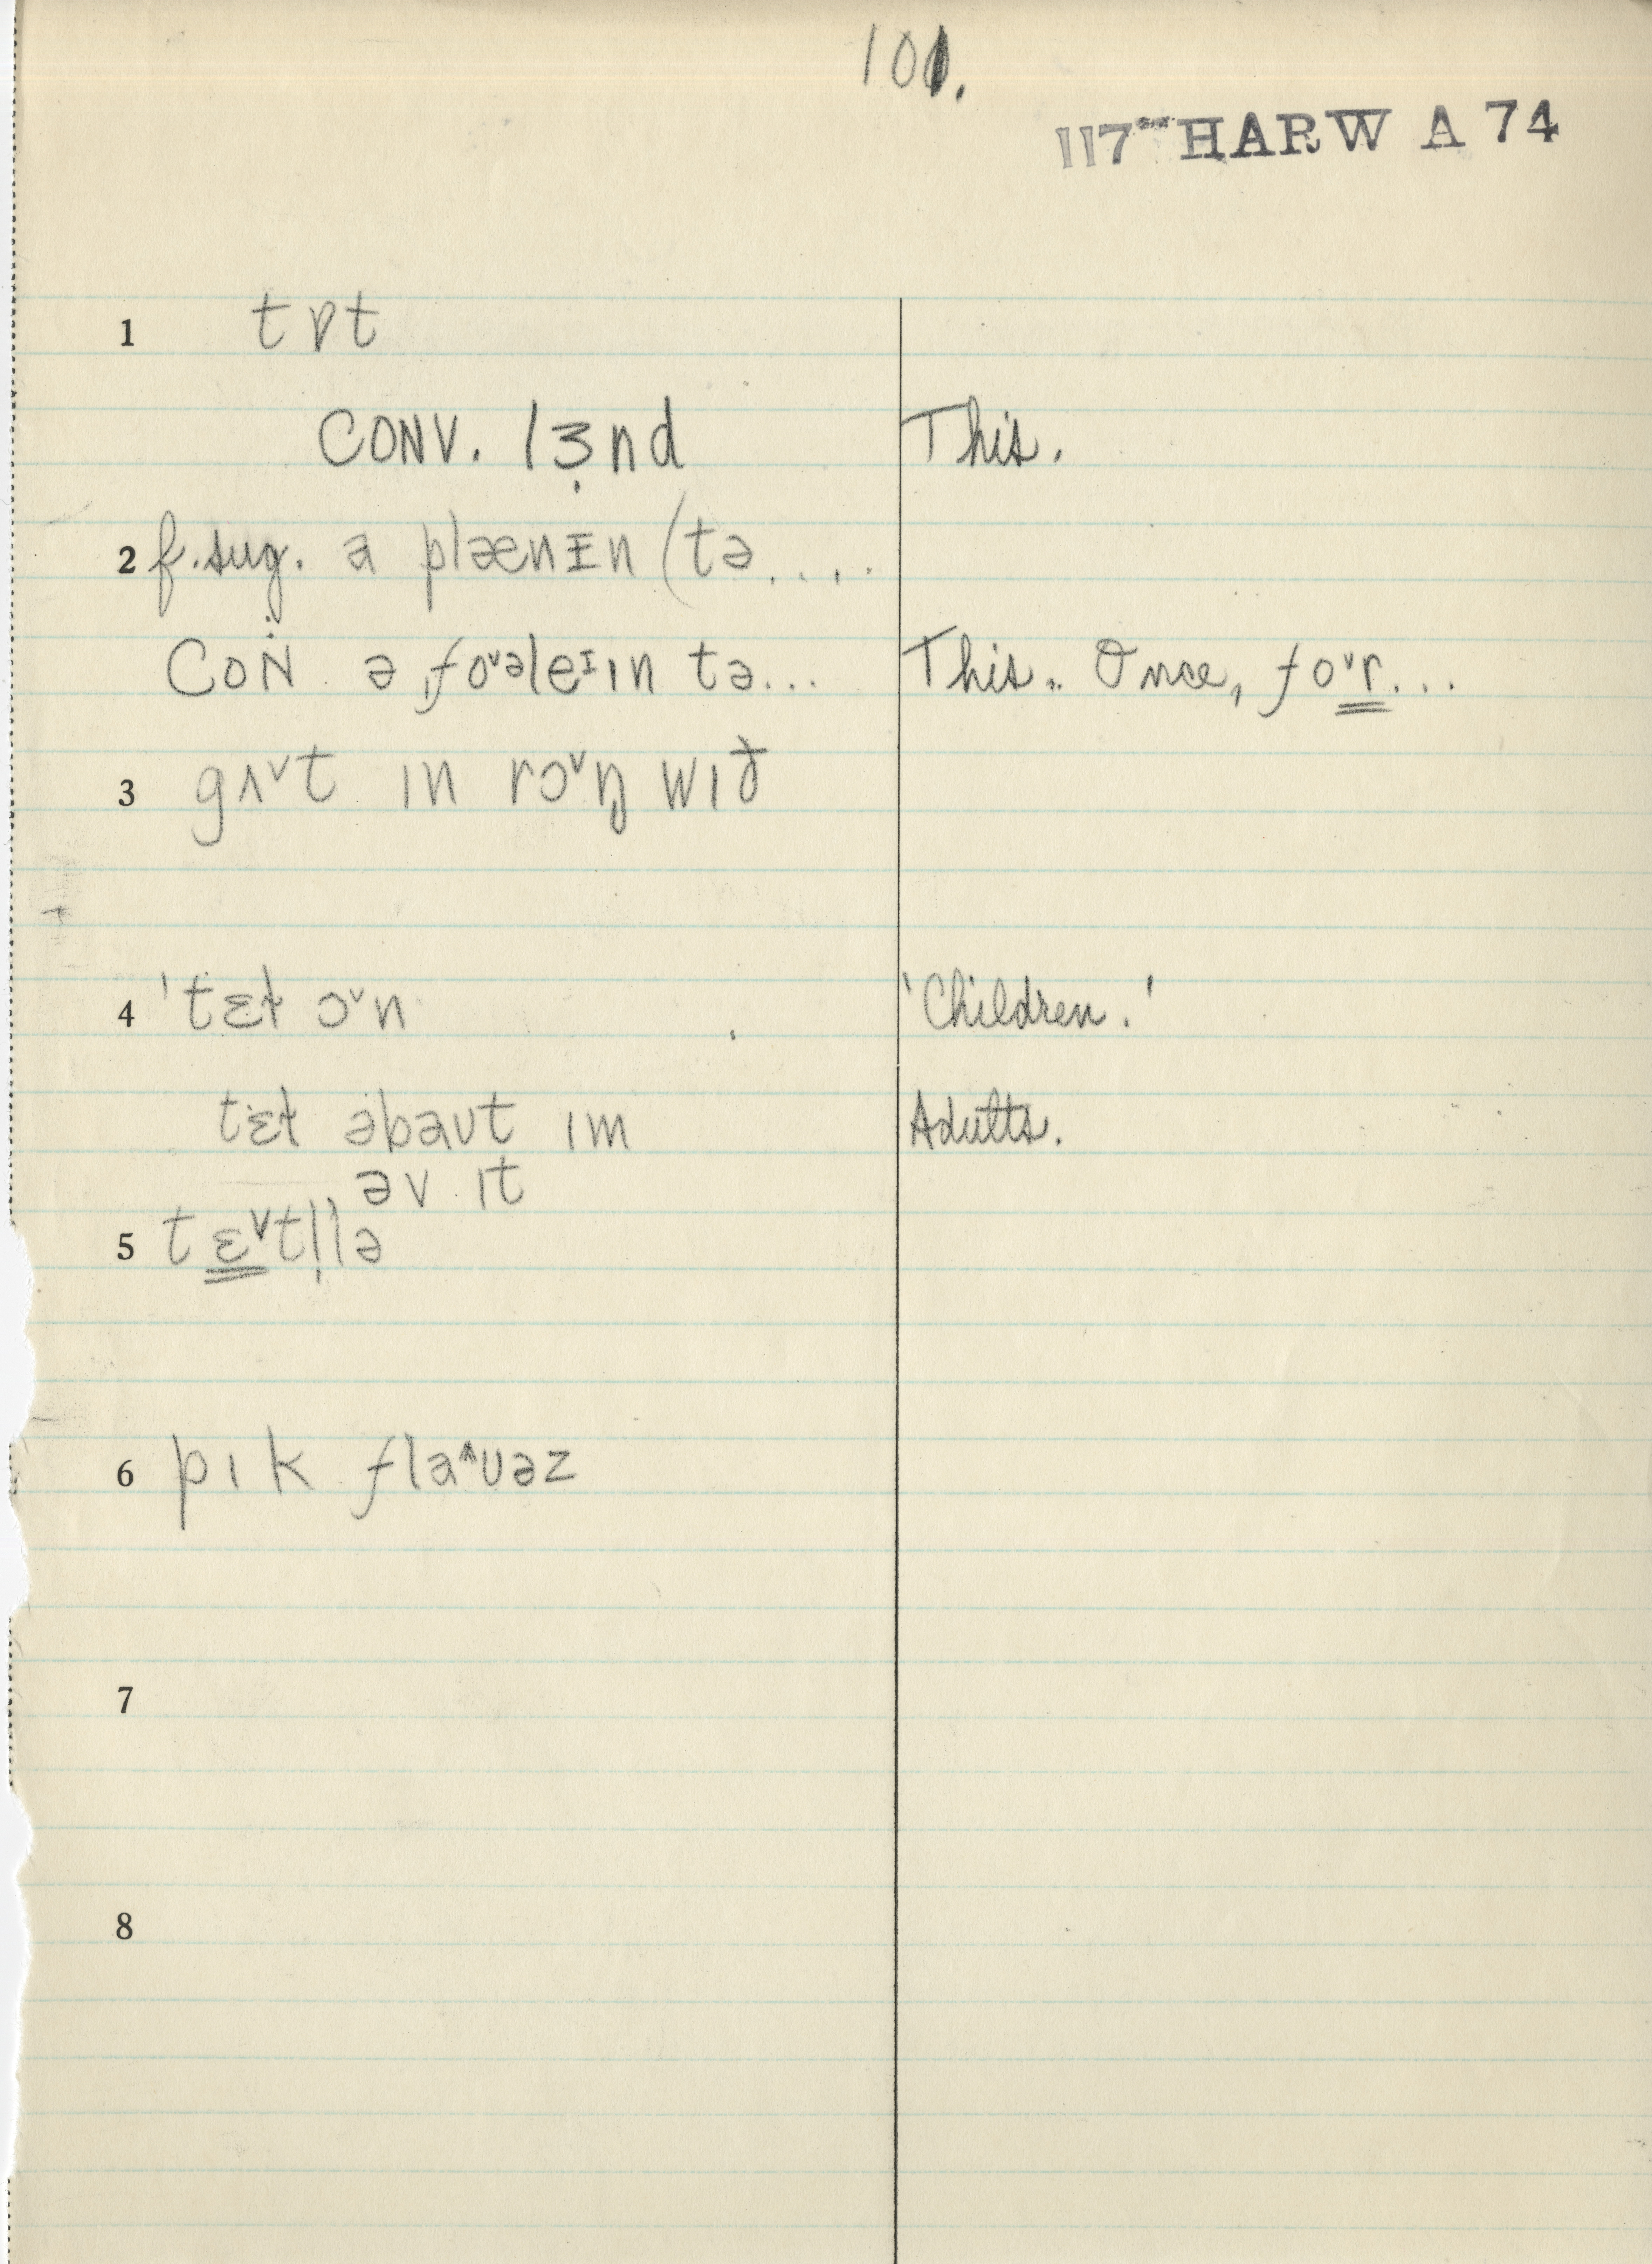 101.
117** HARW A 74
1 tɒt
CONV. lɜ̣nd This.
2 f. sug. a plænɪn (tə....
CON ə ˌfoᵛəleᶦɪn tə... This.. Once, foᵛr...
3 gʌᵛt ɪn rɔᵛŋ wɪð
4 'tɛɫ ɔᵛn 'Children.'
tɛɫ əbaʊt ɪm Adults.
əv ɪt
5 tɛᵛtl̩lə
6 pɪk flaᶺʊəz
7
8